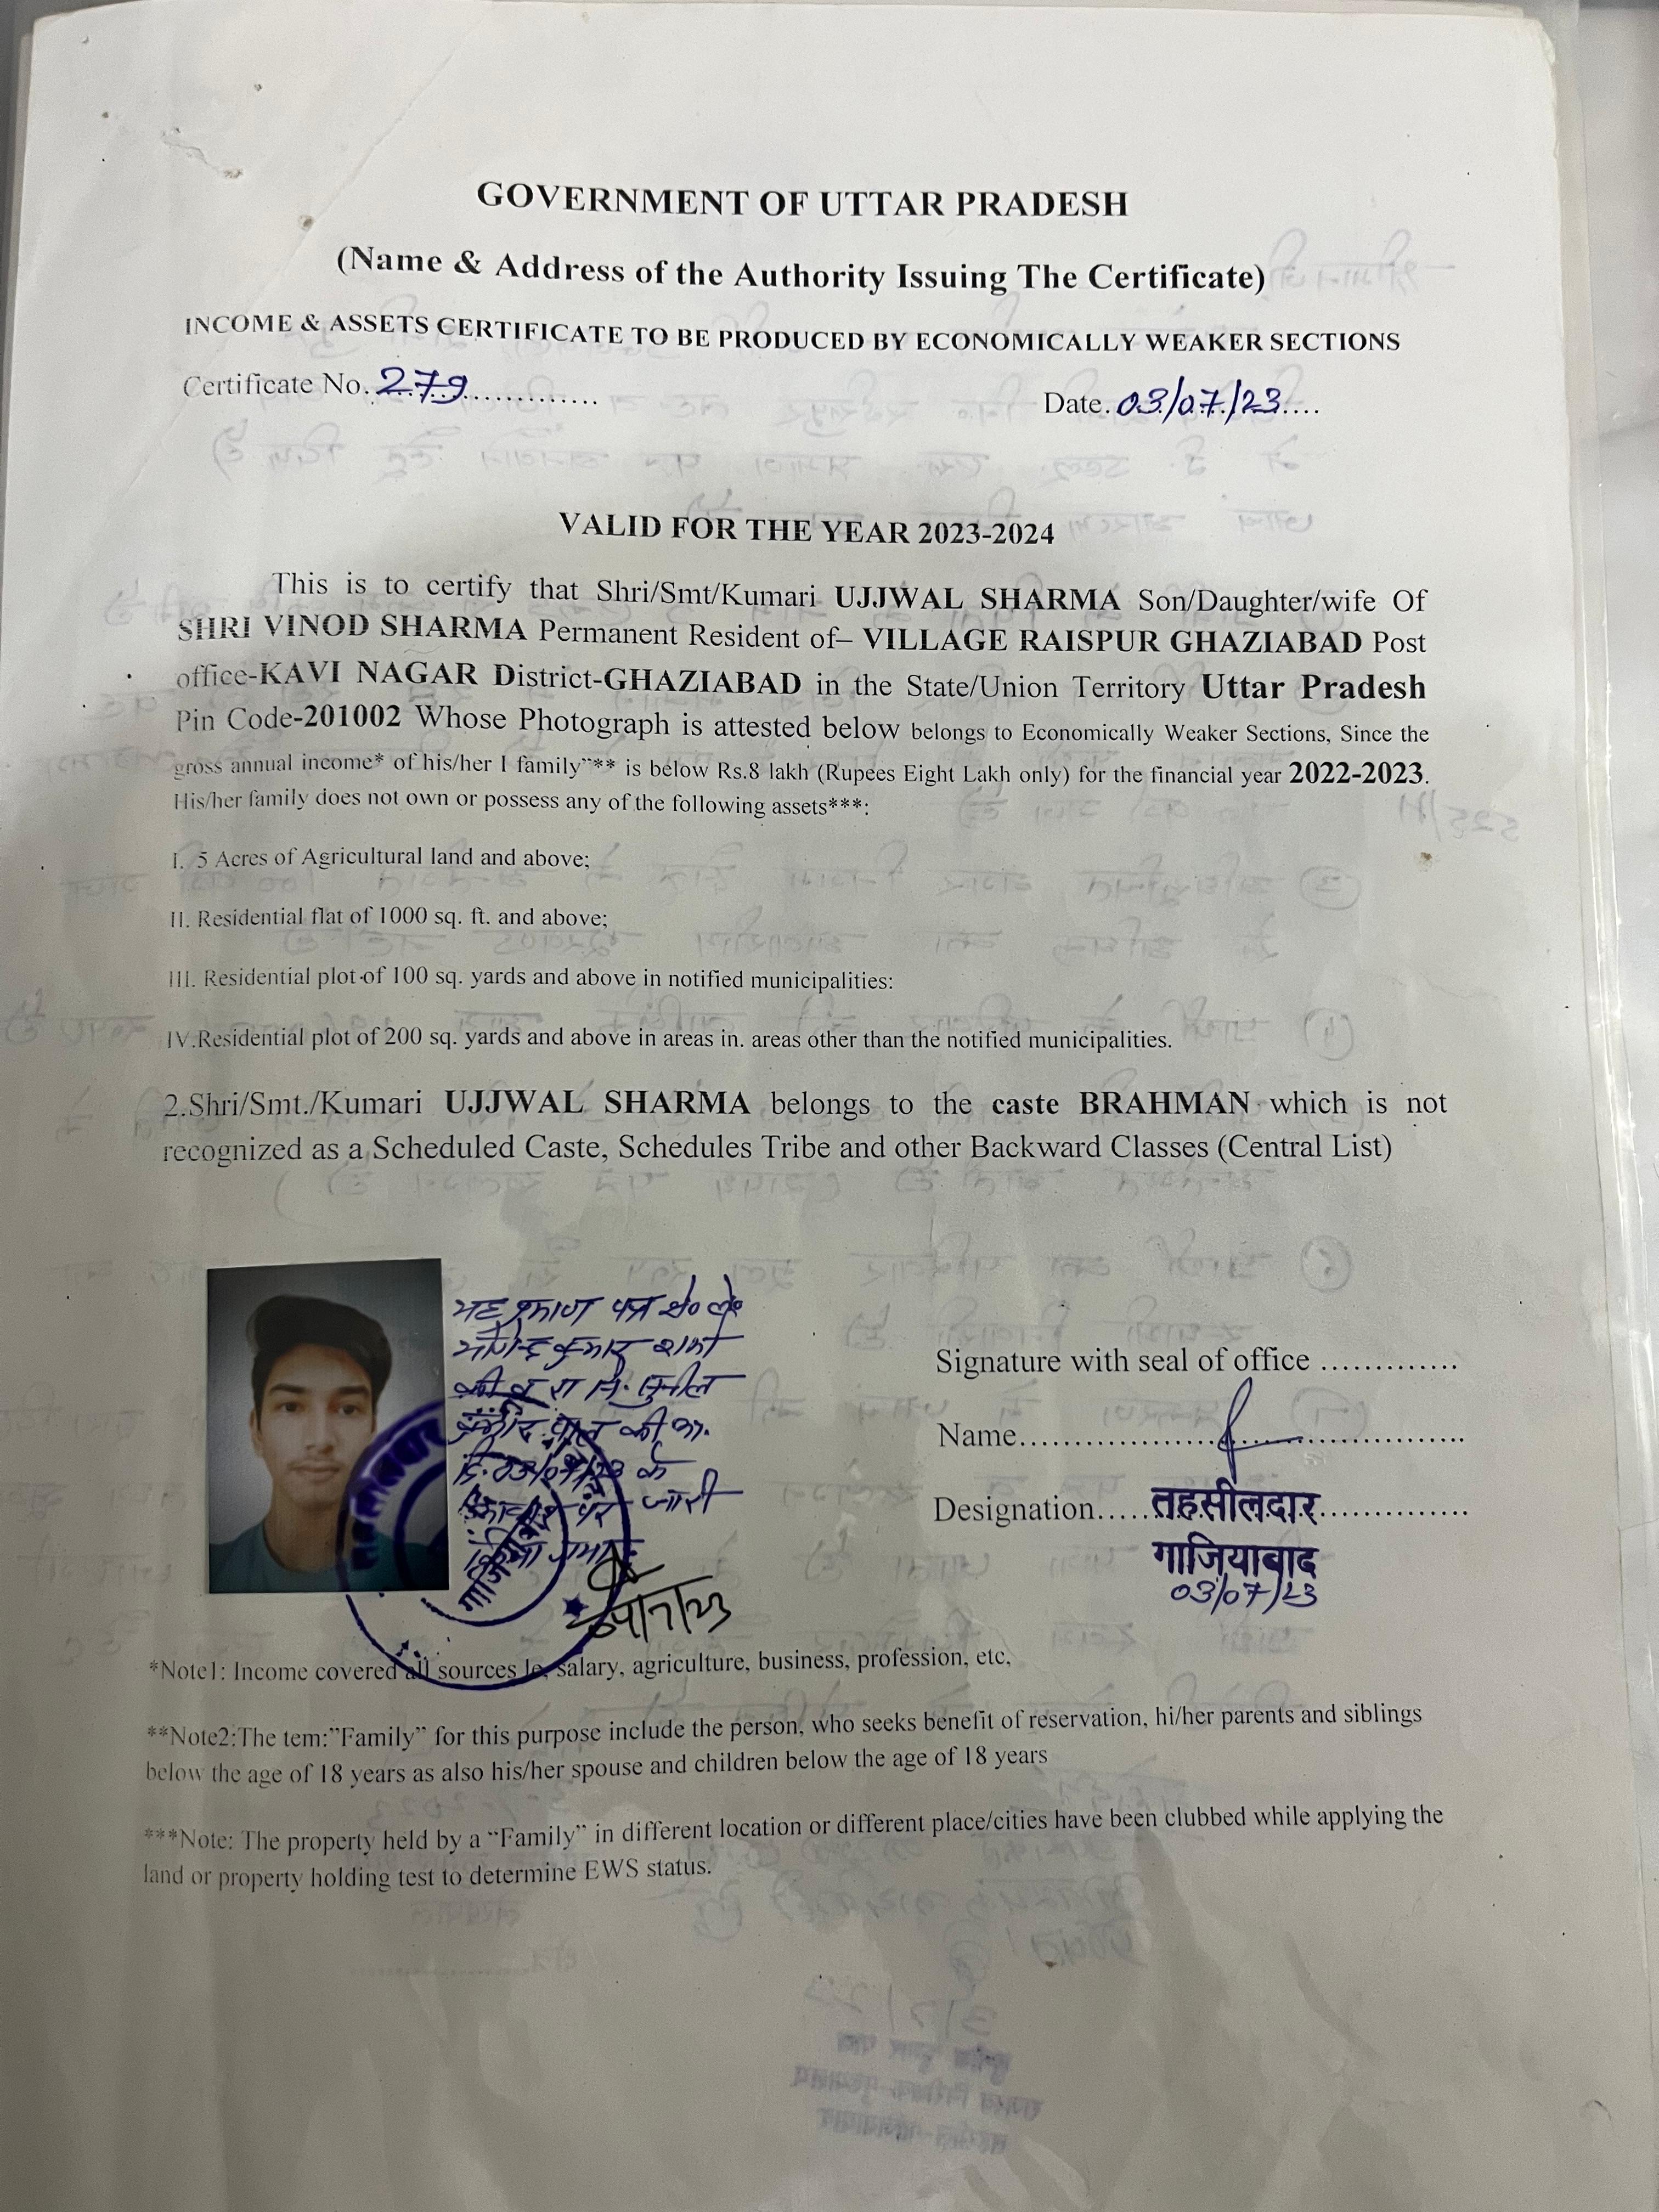 GOVERNMENT OF UTTAR PRADESH
(Name & Address of the Authority Issuing The Certificate)
INCOME & ASSETS CERTIFICATE TO BE PRODUCED BY ECONOMICALLY WEAKER SECTIONS
Certificate No. 279..............
Date. 03/07/23....
VALID FOR THE YEAR 2023-2024
This is to certify that Shri/Smt/Kumari UJJWAL SHARMA Son/Daughter/wife Of
SHRI VINOD SHARMA Permanent Resident of– VILLAGE RAISPUR GHAZIABAD Post
office-KAVI NAGAR District-GHAZIABAD in the State/Union Territory Uttar Pradesh
Pin Code-201002 Whose Photograph is attested below belongs to Economically Weaker Sections, Since the
gross annual income* of his/her I family"** is below Rs.8 lakh (Rupees Eight Lakh only) for the financial year 2022-2023.
His/her family does not own or possess any of the following assets***:
I. 5 Acres of Agricultural land and above;
II. Residential flat of 1000 sq. ft. and above;
III. Residential plot of 100 sq. yards and above in notified municipalities:
IV.Residential plot of 200 sq. yards and above in areas in. areas other than the notified municipalities.
2.Shri/Smt./Kumari UJJWAL SHARMA belongs to the caste BRAHMAN which is not
recognized as a Scheduled Caste, Schedules Tribe and other Backward Classes (Central List)
यह प्रमाण पत्र
शर्मा
पाल की
दि. 03/07/23 के
पर जारी
किया गया
गाजियाबाद
04/7/23
Signature with seal of office .............
Name..........................................
Designation.....तहसीलदार...............
गाजियाबाद
03/07/23
*Note1: Income covered all sources le, salary, agriculture, business, profession, etc,
**Note2:The tem:"Family" for this purpose include the person, who seeks benefit of reservation, hi/her parents and siblings
below the age of 18 years as also his/her spouse and children below the age of 18 years
***Note: The property held by a "Family" in different location or different place/cities have been clubbed while applying the
land or property holding test to determine EWS status.